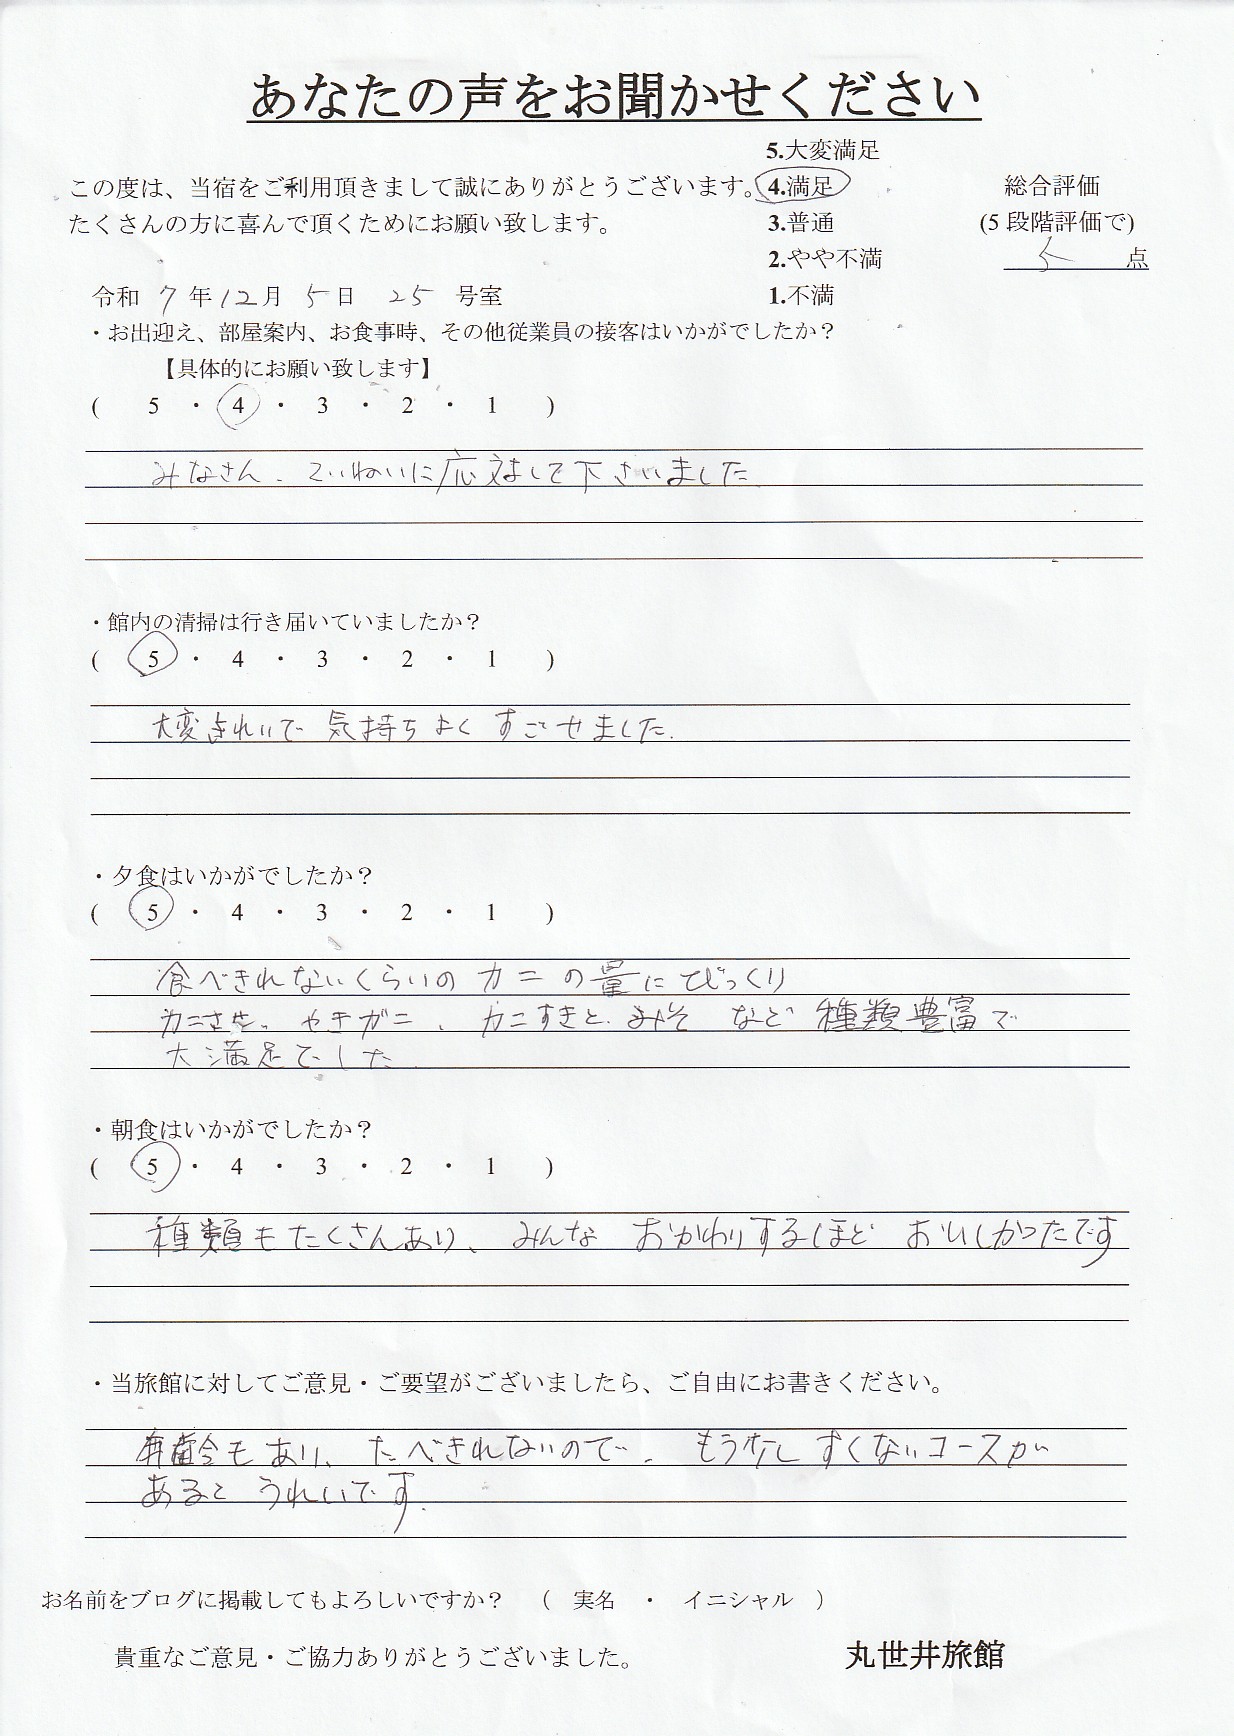 あなたの声をお聞かせください
5.大変満足
この度は、当宿をご利用頂きまして誠にありがとうございます。
4.満足
総合評価
たくさんの方に喜んで頂くためにお願い致します。
3.普通
(5段階評価で)
2.やや不満
5 点
令和 7 年 12月 5日 25 号室
1.不満
・お出迎え、部屋案内、お食事時、その他従業員の接客はいかがでしたか？
【具体的にお願い致します】
( 5 ・ 4 ・ 3 ・ 2 ・ 1 )
みなさん、ていねいに応対して下さいました
・館内の清掃は行き届いていましたか？
( 5 ・ 4 ・ 3 ・ 2 ・ 1 )
大変きれいで気持ちよくすごせました.
・夕食はいかがでしたか？
( 5 ・ 4 ・ 3 ・ 2 ・ 1 )
食べきれないくらいのカニの量にびっくり
カニさし、やきガニ、カニすきと、みそなど種類豊富で
大満足でした.
・朝食はいかがでしたか？
( 5 ・ 4 ・ 3 ・ 2 ・ 1 )
種類もたくさんあり、みんなおかわりするほどおいしかったです
・当旅館に対してご意見・ご要望がございましたら、ご自由にお書きください。
年齢もあり、たべきれないので、もう少しすくないコースが
あるとうれしいです.
お名前をブログに掲載してもよろしいですか？ （ 実名 ・ イニシャル ）
貴重なご意見・ご協力ありがとうございました。
丸世井旅館